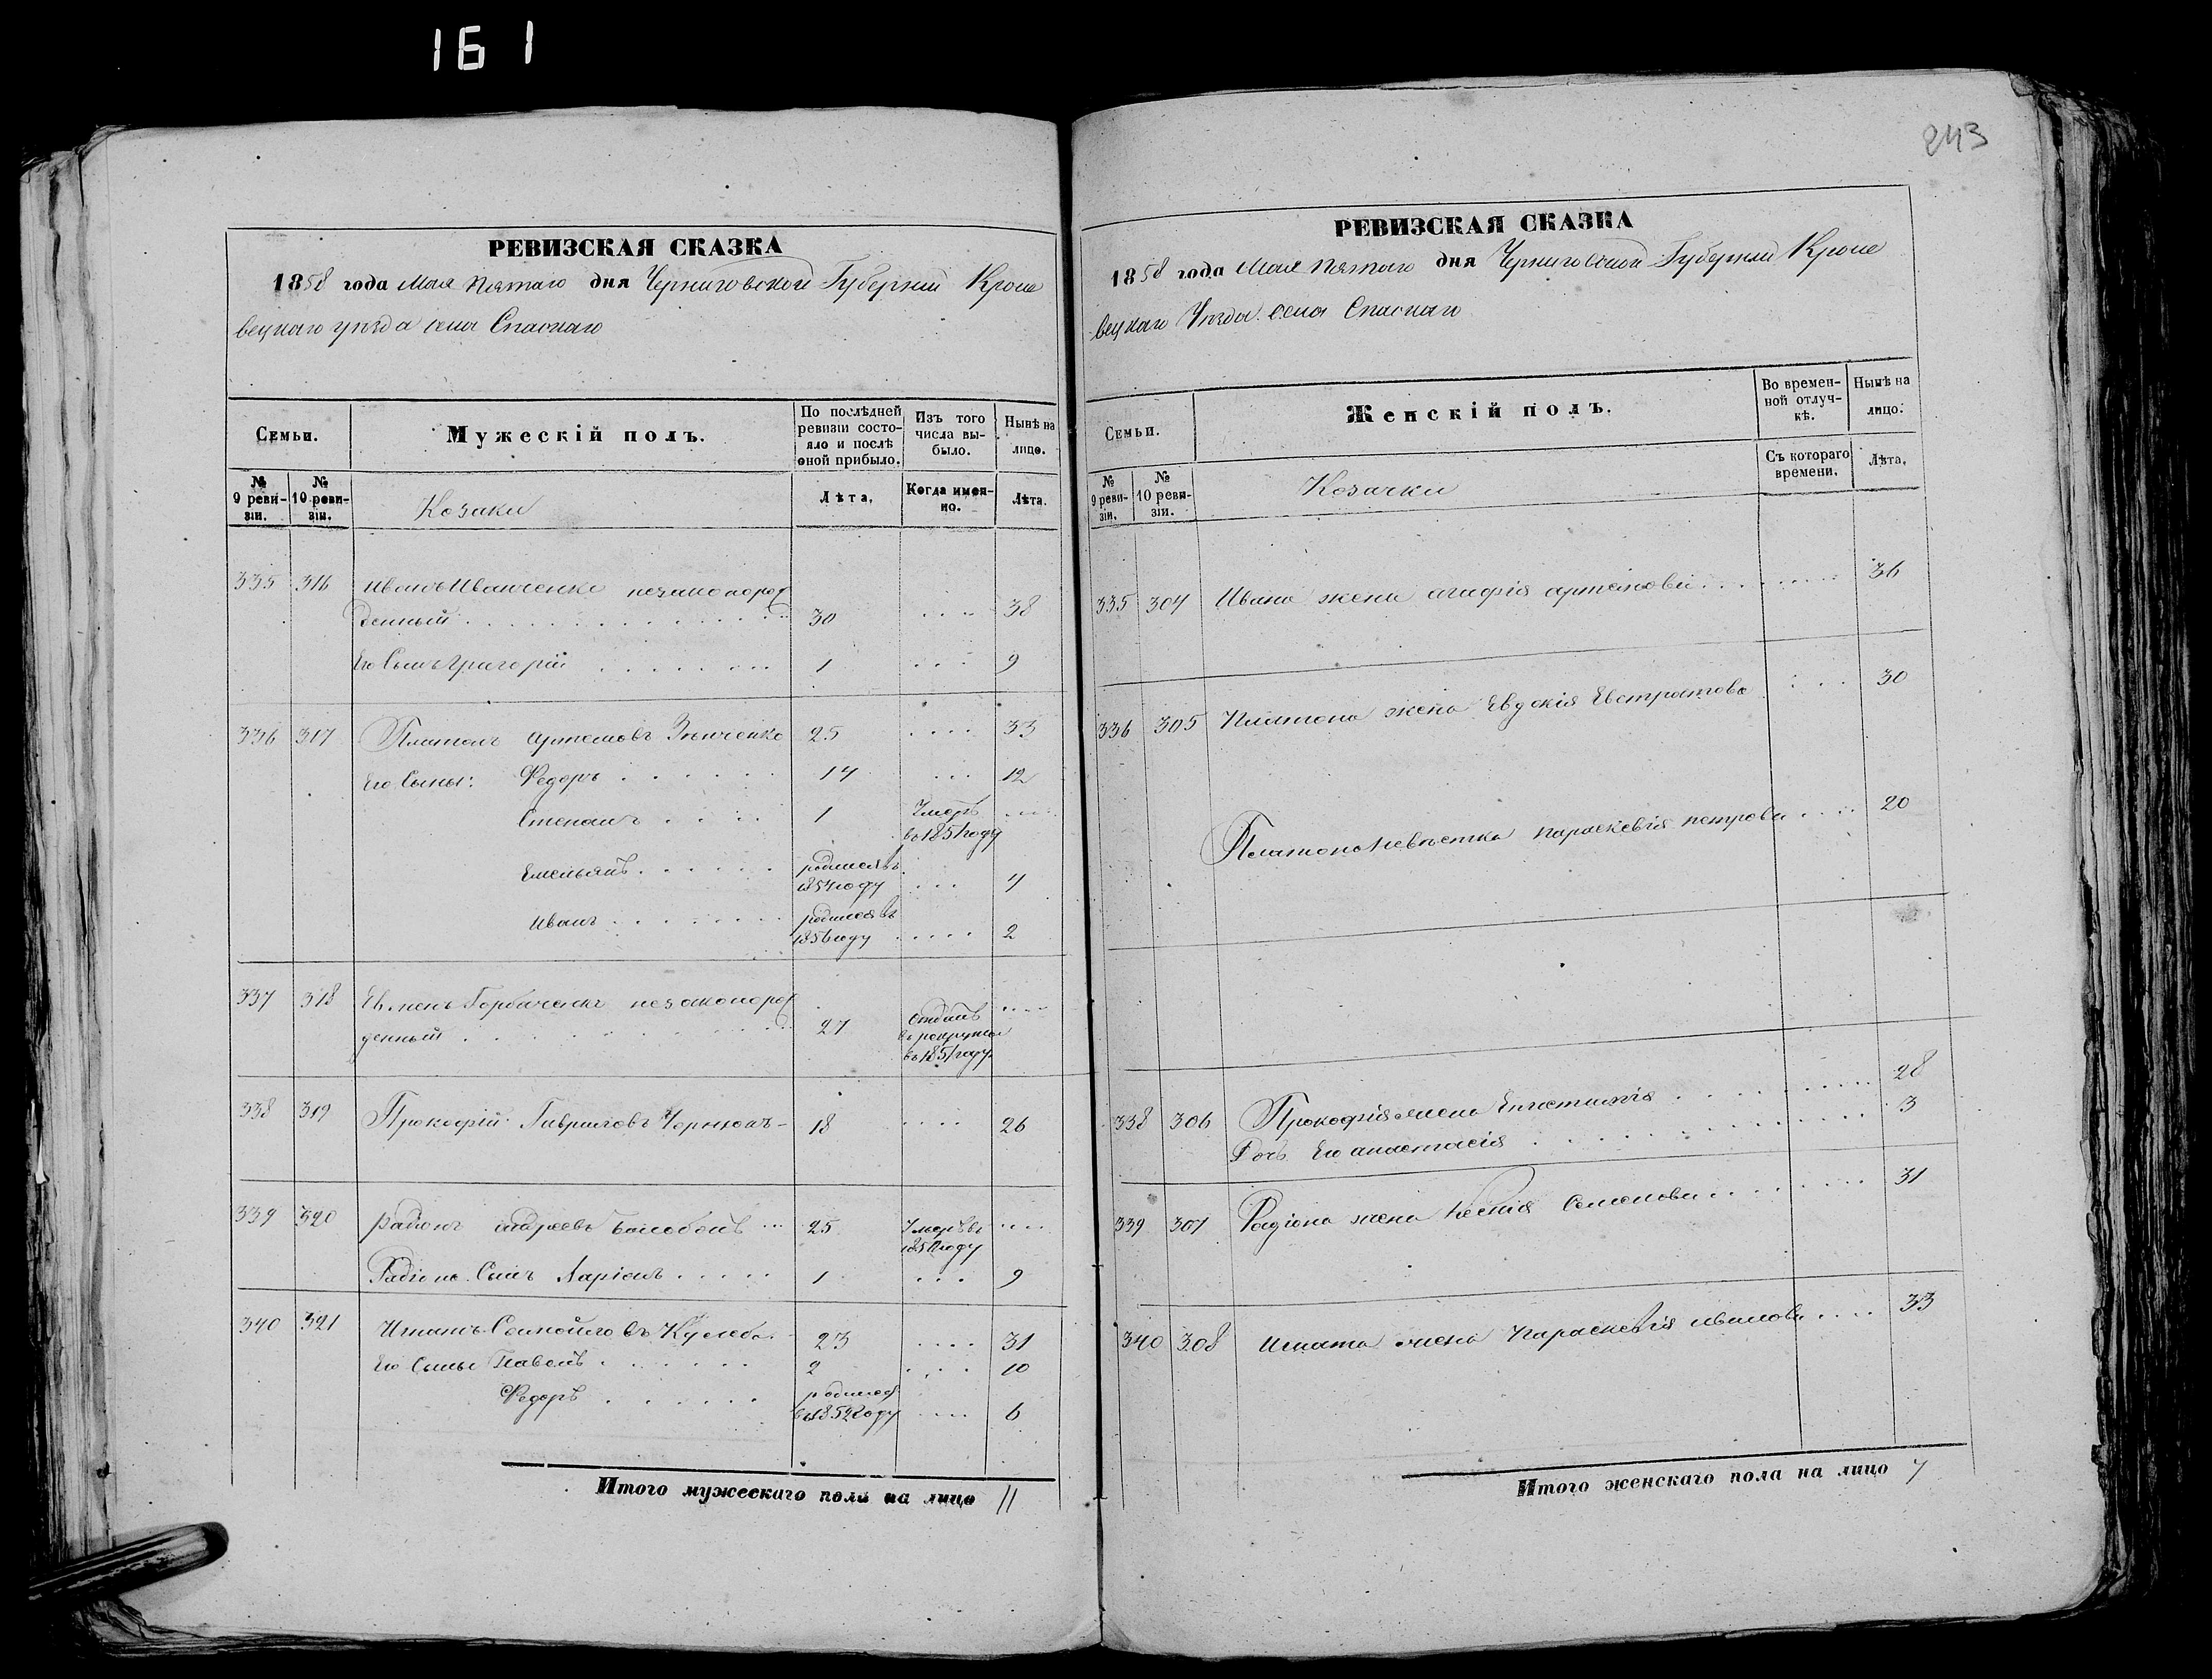 161
243
РЕВИЗСКАЯ СКАЗКА
1858 года Мая Пятаго дня Черниговской Губерніи Кроле
вецкаго уѣзда села Спаскаго
Семьи.
Мужескій полъ.
По послѣдней ревизіи состояло и послѣ оной прибыло.
Изъ того числа выбыло.
Нынѣ на лицо.
№ 9 ревизіи.
№ 10 ревизіи.
Козаки
Лѣта.
Когда именно.
Лѣта.
335 316 Иванъ Иванченко незаконорож
денный 30 38
Его Сынъ Григорій 1 9
336 317 Платонъ Артемовъ Зѣнченко 25 33
Его Сыны: Федоръ 14 12
Степанъ 1 Умеръ
въ 1851 году
Емельянъ родился въ
1854 году 4
Иванъ родился въ
1856 году 2
337 318 Евменъ Горбаченко незаконорож
денный 27 Отданъ
въ рекруты
въ 1851 году
338 319 Прокофій Гавриловъ 18 26
339 320 Радіонъ Андреевъ 25 Умеръ въ
году
Радіона Сынъ Ларіонъ 1 9
340 321 Игнатъ Самойловъ Кулеба 23 31
Его Сыны Павелъ 2 10
Федоръ родился
въ 1852 году 6
Итого мужескаго пола на лицо 11
РЕВИЗСКАЯ СКАЗКА
1858 года Мая Пятаго дня Черниговской Губерніи Кроле
вецкаго Уѣзда села Спаскаго
Семьи.
Женскій полъ.
Во временной отлучкѣ.
Нынѣ на лицо.
№ 9 ревизіи.
№ 10 ревизіи.
Козачки
Съ котораго времени.
Лѣта.
335 304 Ивана жена Агафія Артемова 36
336 305 Платона жена Евдокія Евстратова 30
Платона невѣстка Параскевія Петрова 20
338 306 Прокофія жена 28
Дочь Его Анастасія 3
339 307 Радіона жена Ксенія Семенова 31
340 308 Игната жена Параскевія Иванова 33
Итого женскаго пола на лицо 7